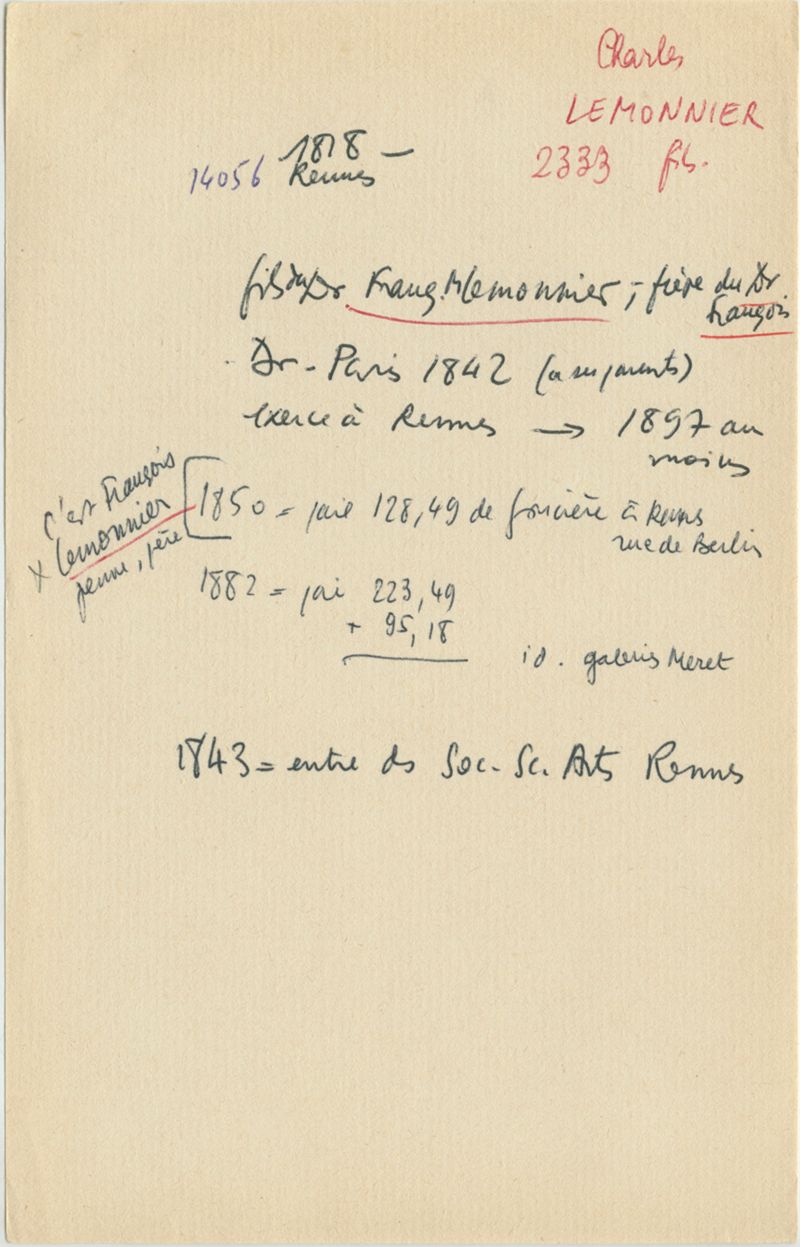 Charles
LEMONNIER
2333 fils.
1818 –
14056 Rennes
fils du Dr Franç. M Lemonnier, frère du Dr.
François
Dr - Paris 1842 (a ses parents)
exerce à Rennes → 1897 au
moins
C'est François
x Lemonnier
jeune, père
1850 = paie 128,49 de foncière à Rennes
rue de Berlin
1882 = paie 223,49
+ 95,18
id. galeries Meret
1843 = entre ds Soc. Sc. Arts Rennes